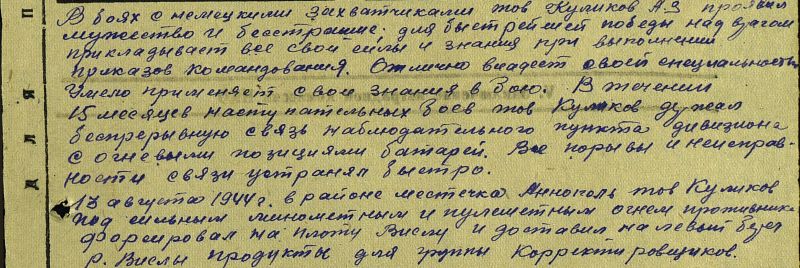 В боях с немецкими захватчиками тов Куликов А.З. проявил
мужество и бесстрашие: для быстрейшей победы над врагом
прикладывает все свои силы и знания при выполнении
приказов командования. Отлично владеет своей специальностью
Умело применяет свои знания в бою. В течении
15 месяцев наступательных боев тов Куликов держал
беспрерывную связь наблюдательного пункта дивизиона
с огневыми позициями батарей. Все порывы и неисправ-
ности связи устранял быстро.
13 августа 1944 г. в районе местечка Аннополь тов Куликов
под сильным минометным и пулеметным огнем противника
форсировал на плоту Вислу и доставил на левый берег
р. Вислы продукты для группы Корректировщиков.
д л я п